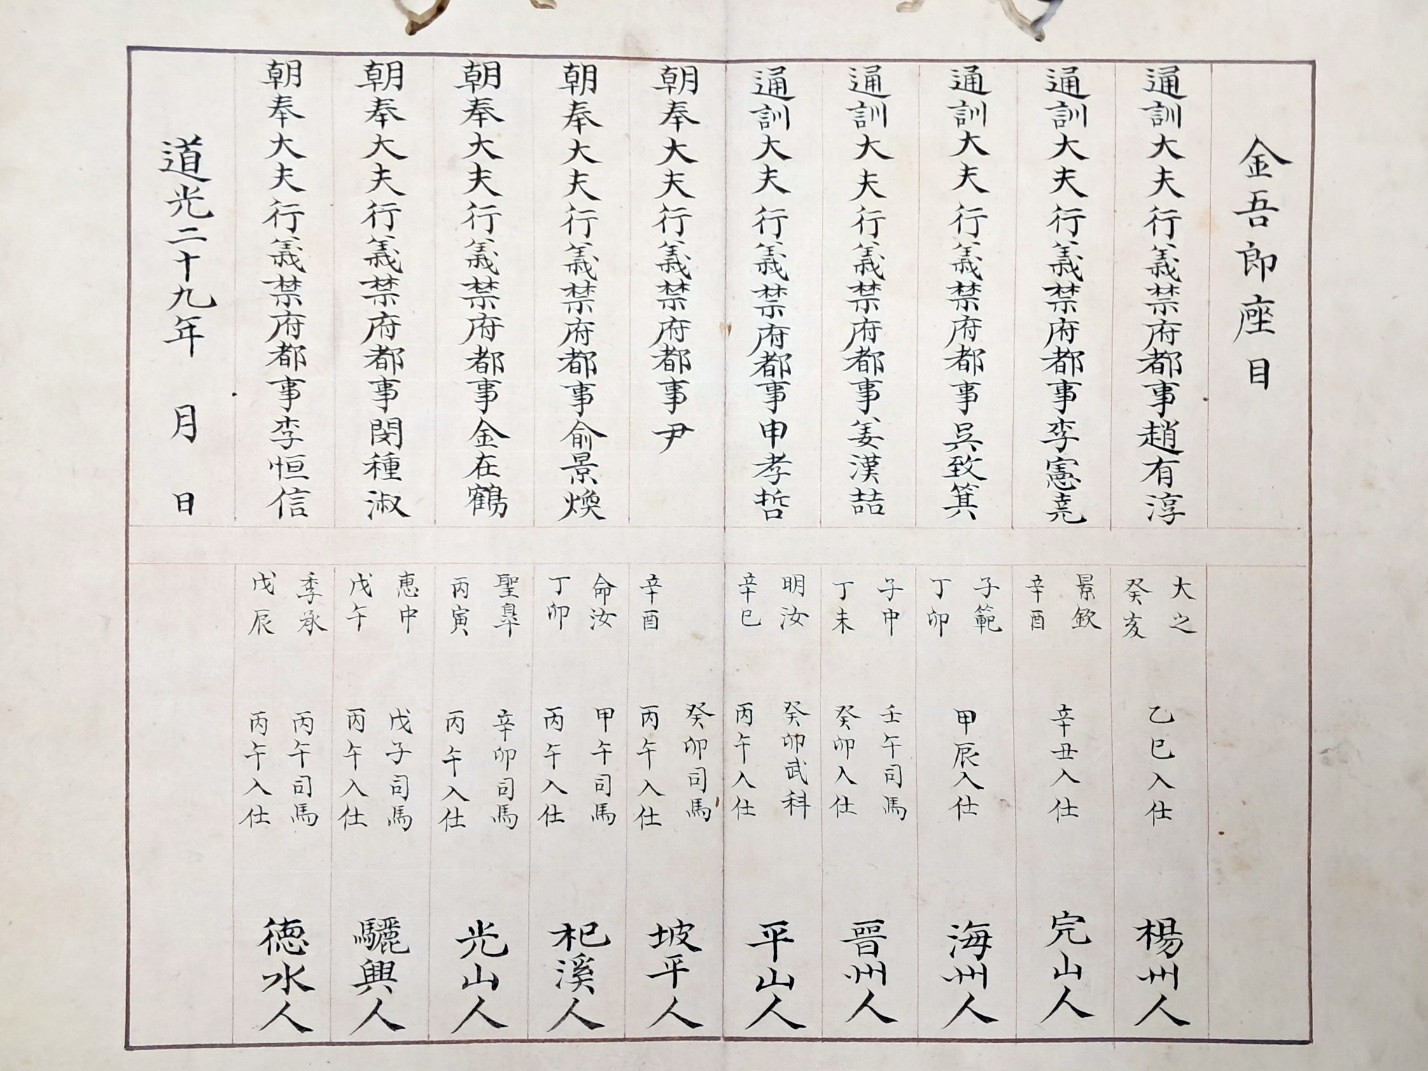 金吾郎座目
通訓大夫行義禁府都事趙有淳
大之
癸亥
乙巳入仕
楊州人
通訓大夫行義禁府都事李憲堯
景欽
辛酉
辛丑入仕
完山人
通訓大夫行義禁府都事吳致箕
子範
丁卯
甲辰入仕
海州人
通訓大夫行義禁府都事姜漢喆
子中
丁未
壬午司馬
癸卯入仕
晉州人
通訓大夫行義禁府都事申孝哲
明汝
辛巳
癸卯武科
丙午入仕
平山人
朝奉大夫行義禁府都事尹
辛酉
癸卯司馬
丙午入仕
坡平人
朝奉大夫行義禁府都事俞景煥
命汝
丁卯
甲午司馬
丙午入仕
杞溪人
朝奉大夫行義禁府都事金在鶴
聖臯
丙寅
辛卯司馬
丙午入仕
光山人
朝奉大夫行義禁府都事閔種淑
惠中
戊午
戊子司馬
丙午入仕
驪興人
朝奉大夫行義禁府都事李恒信
季承
戊辰
丙午司馬
丙午入仕
德水人
道光二十九年 月 日